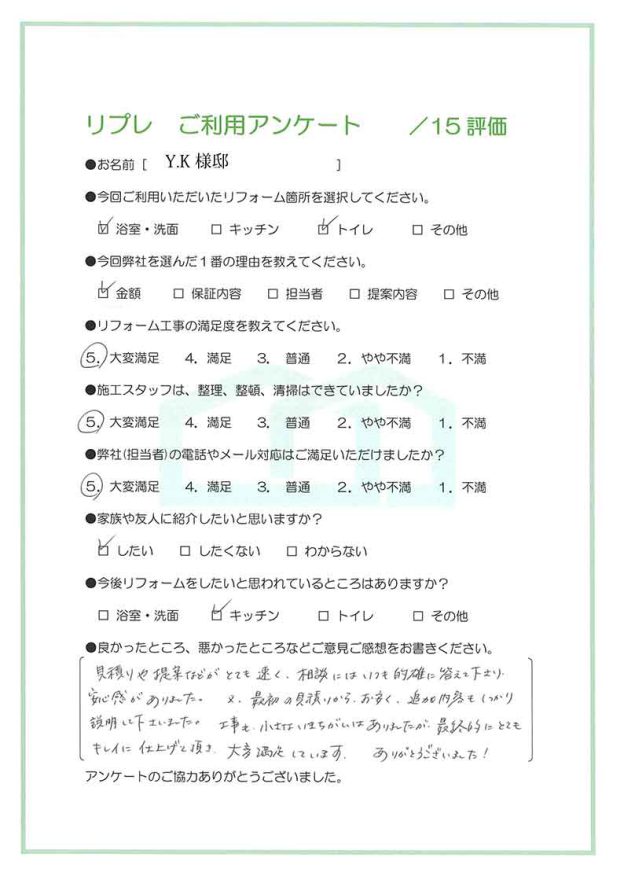 リプレ　ご利用アンケート　　／15評価
●お名前 [ Y.K 様邸 ]
●今回ご利用いただいたリフォーム箇所を選択してください。
☑ 浴室・洗面　□ キッチン　☑ トイレ　□ その他
●今回弊社を選んだ１番の理由を教えてください。
☑ 金額　□ 保証内容　□ 担当者　□ 提案内容　□ その他
●リフォーム工事の満足度を教えてください。
5．大変満足　4．満足　3．普通　2．やや不満　1．不満
●施工スタッフは、整理、整頓、清掃はできていましたか？
5．大変満足　4．満足　3．普通　2．やや不満　1．不満
●弊社(担当者)の電話やメール対応はご満足いただけましたか？
5．大変満足　4．満足　3．普通　2．やや不満　1．不満
●家族や友人に紹介したいと思いますか？
☑ したい　□ したくない　□ わからない
●今後リフォームをしたいと思われているところはありますか？
□ 浴室・洗面　☑ キッチン　□ トイレ　□ その他
●良かったところ、悪かったところなどご意見ご感想をお書きください。
見積りや提案などがとても速く、相談にはいつも的確に答えて下さり
安心感がありました。又、最初の見積りから、追加内容もしっかり
説明して下さいました。工事も、小さないきちがいはありましたが、最終的にとても
キレイに仕上げて頂き、大変満足しています。ありがとうございました！
アンケートのご協力ありがとうございました。